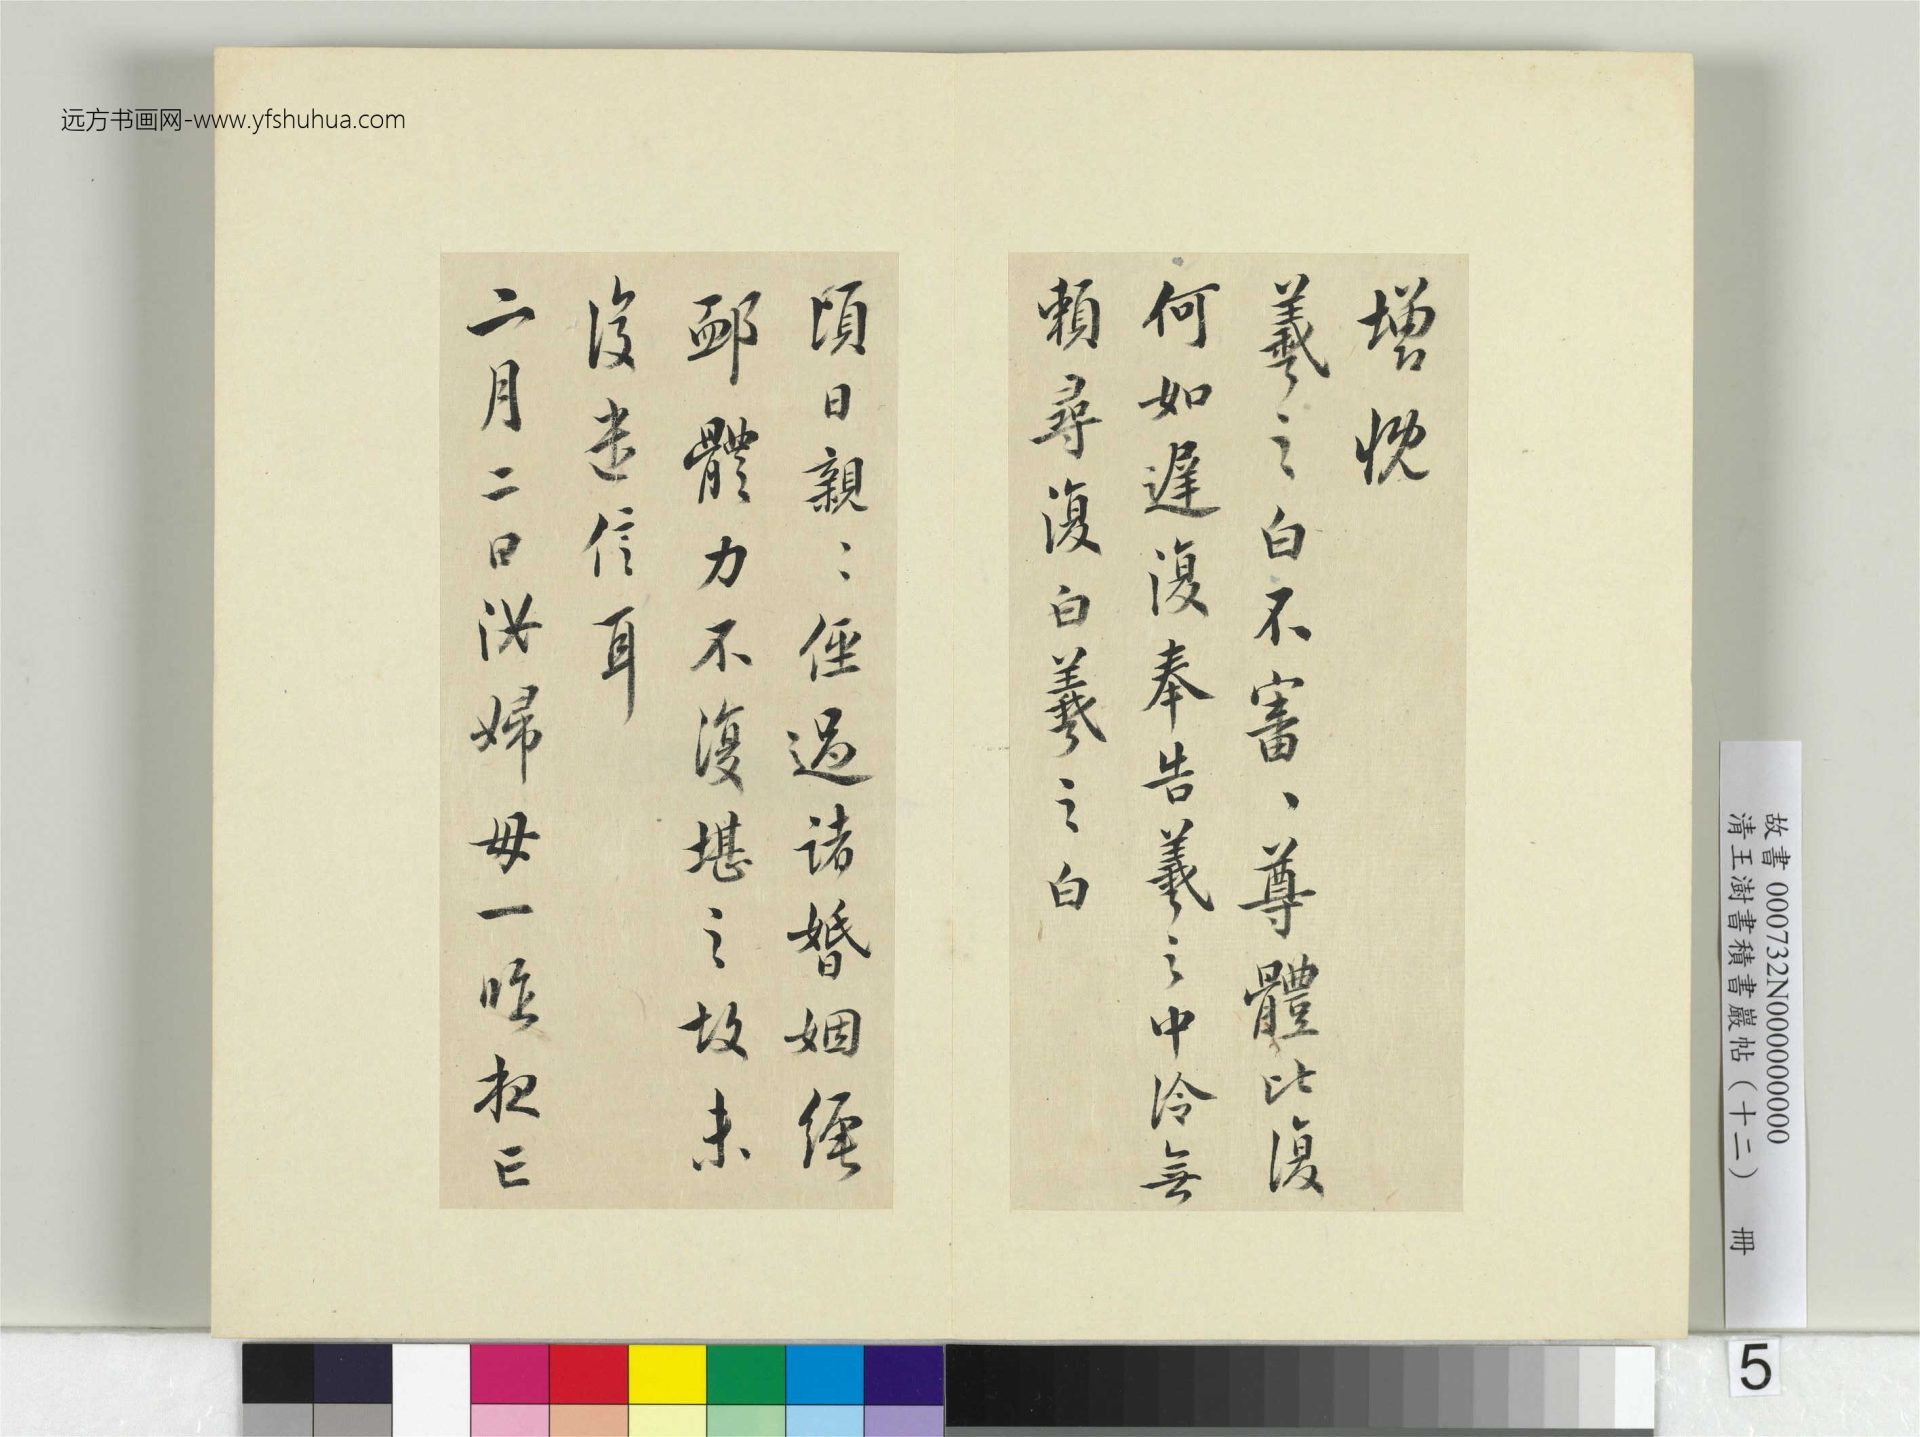 远方书画网-www.yfshuhua.com
增慨
羲之白不審、尊體比復
何如遲復奉告羲之中冷無
賴尋復白羲之白
頃日親〻經過諸婚姻纏
體力不復堪之故未
復遣信耳
二月二日汝婦母一昨夜亡
故書 000732N000000000
清王澍書積書巖帖(十二) 冊
5